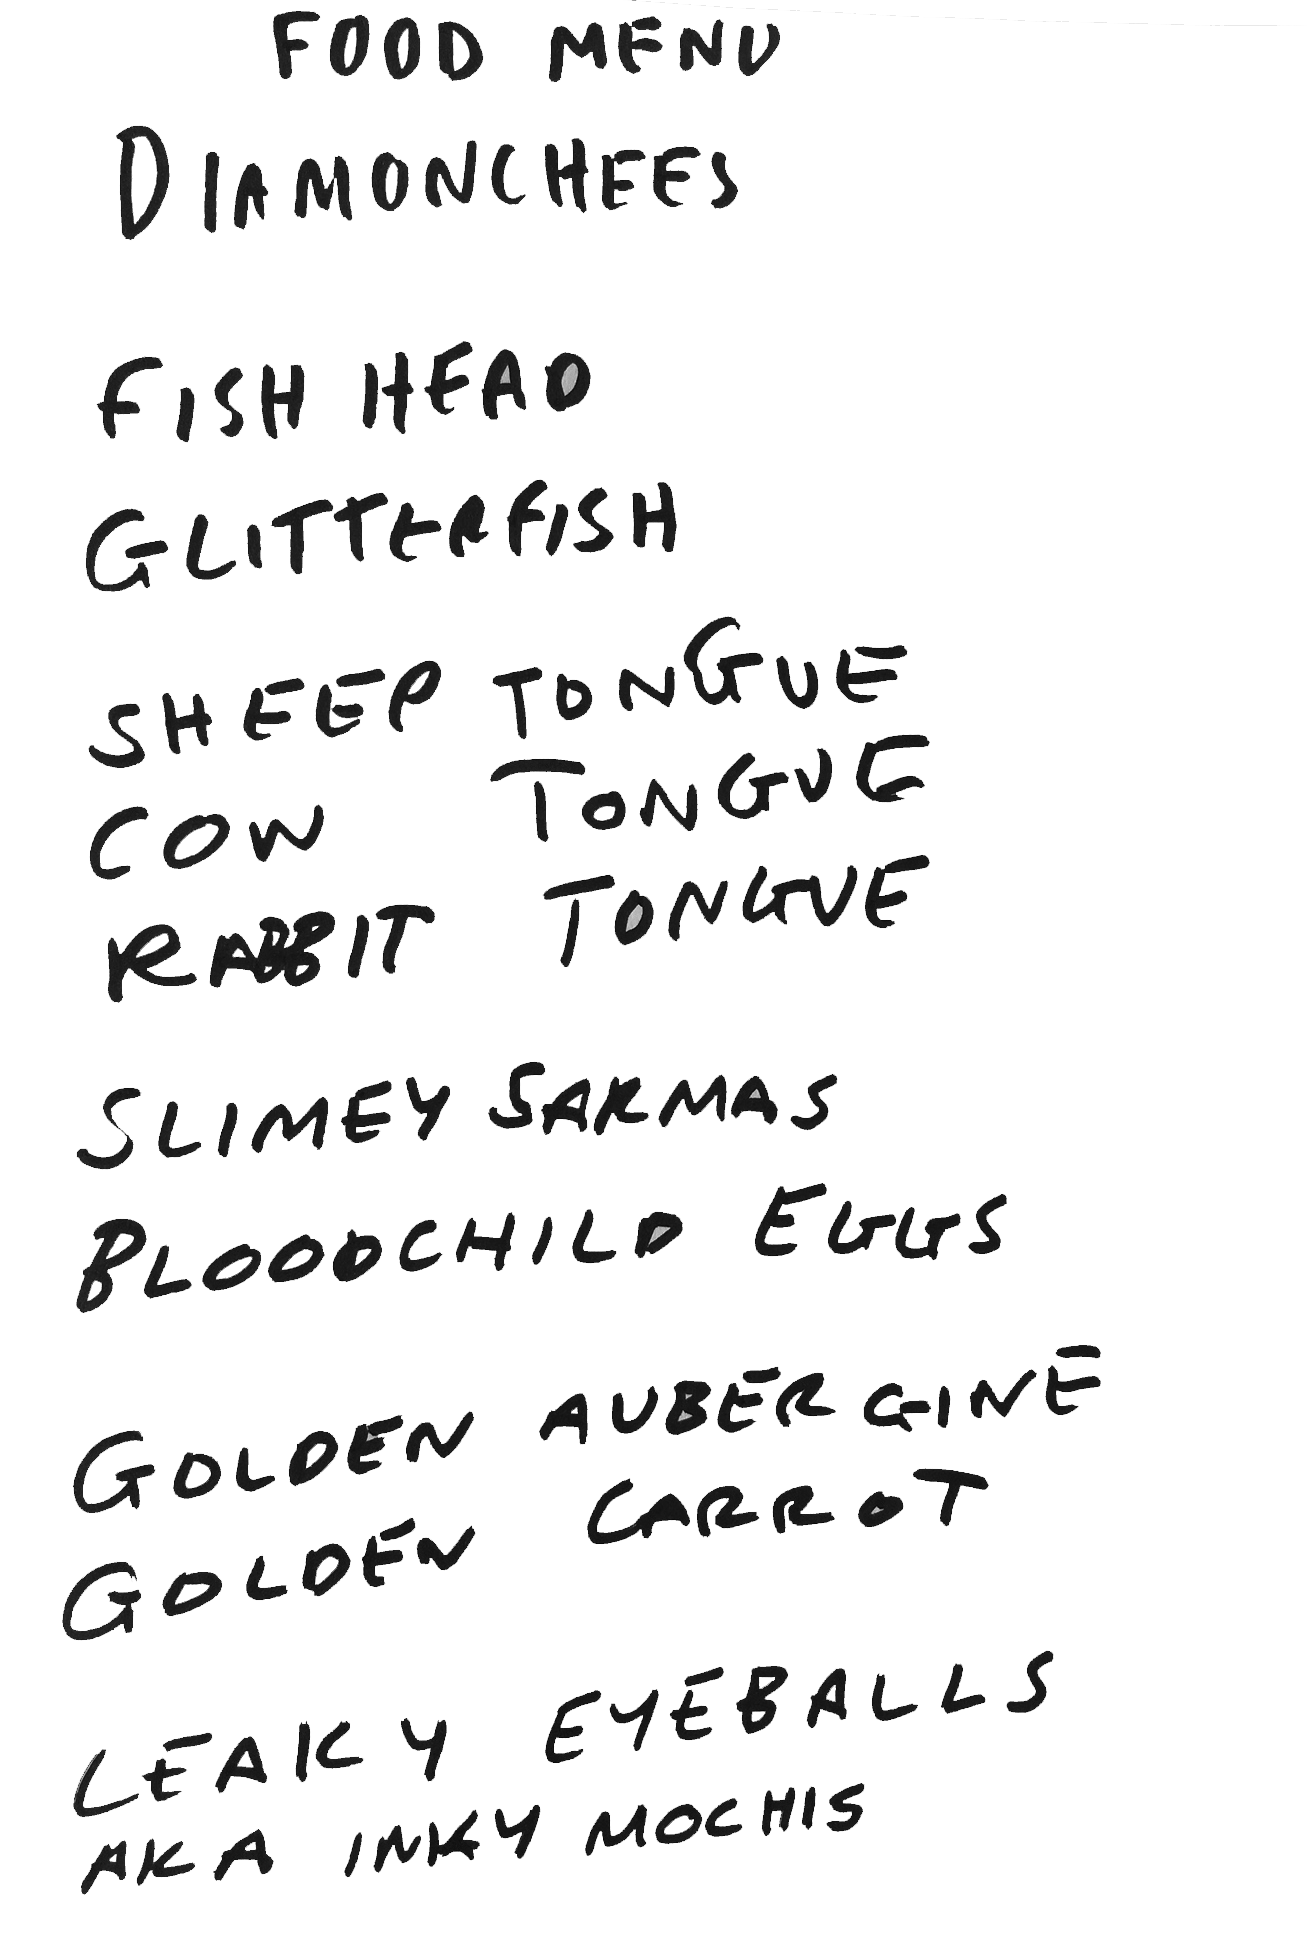 FOOD MENU
DIAMONCHEES
FISH HEAD
GLITTERFISH
SHEEP TONGUE
COW TONGUE
RABBIT TONGUE
SLIMEY SARMAS
BLOODCHILD EGGS
GOLDEN AUBERGINE
GOLDEN CARROT
LEAKY EYEBALLS
AKA INKY MOCHIS